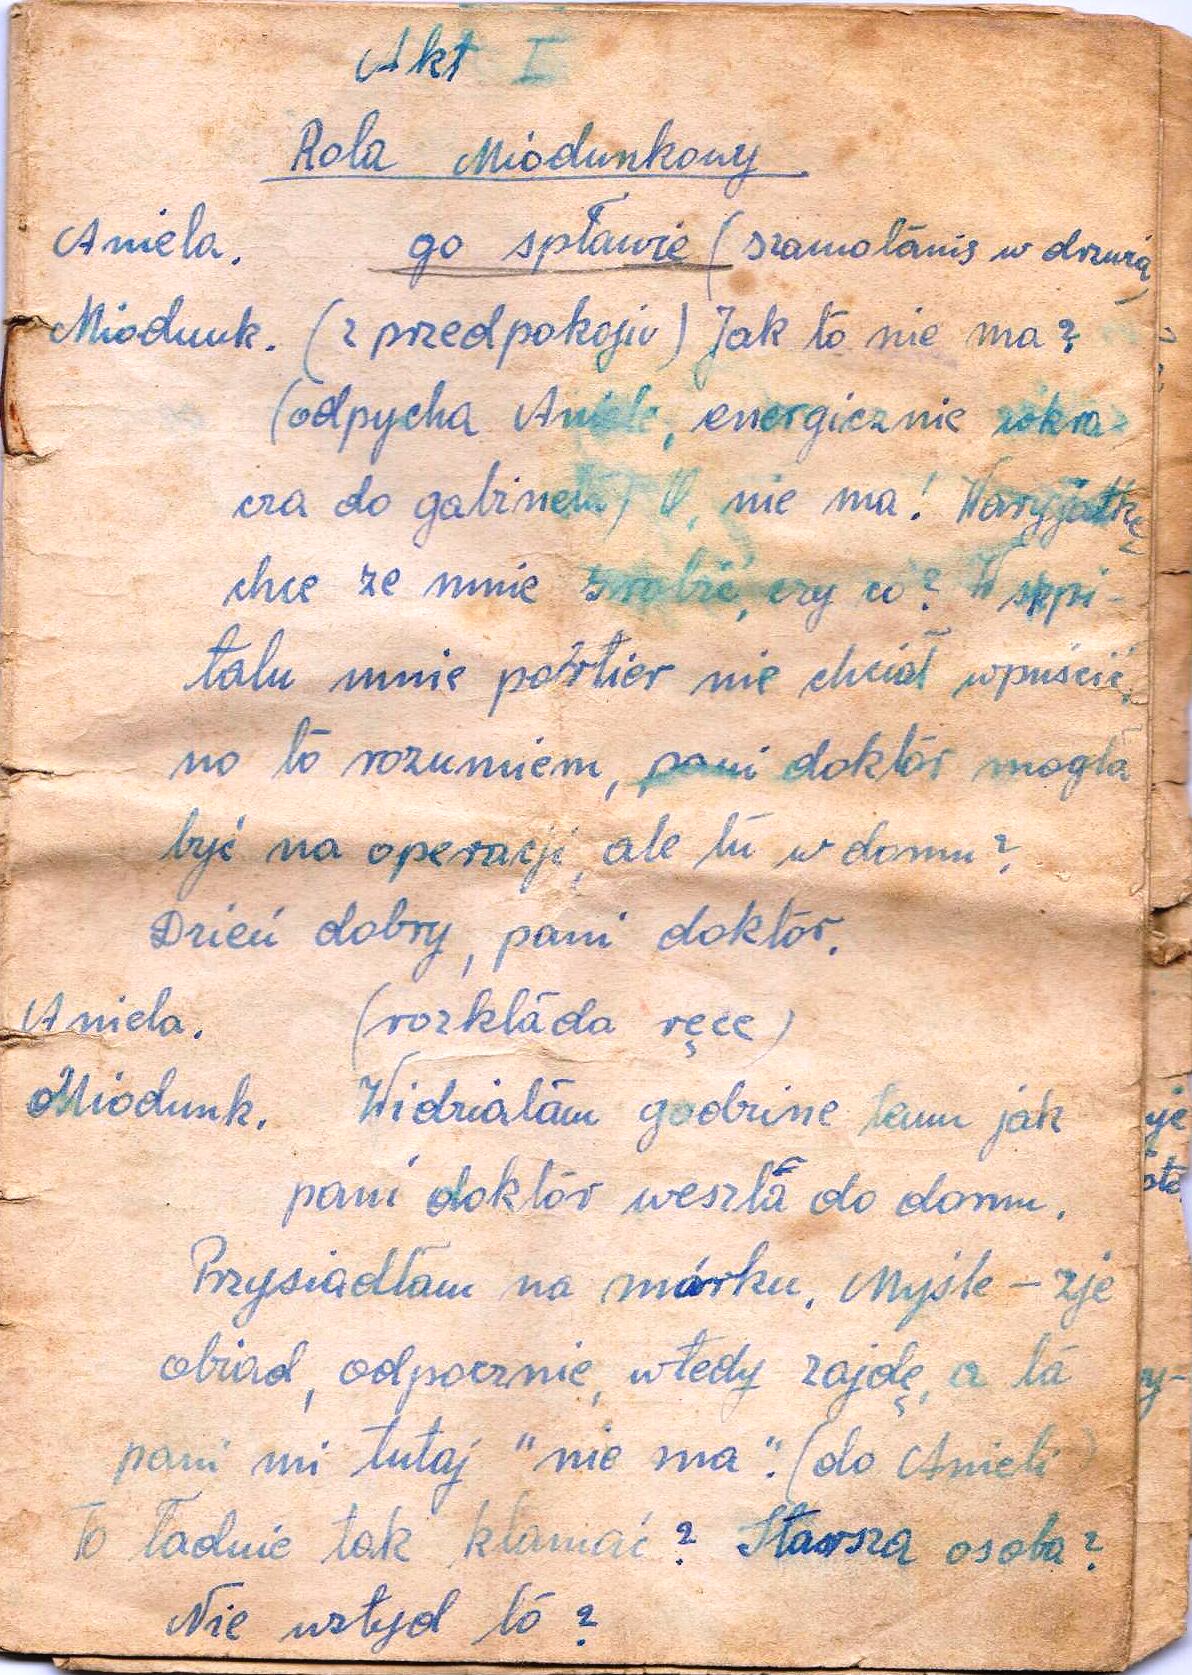 Akt I
Rola Miodunkowy
Aniela. go spławię (szamotanis w drzwią
Miodunk. (z przedpokoju) Jak to nie ma?
(odpycha Anielę, energicznie wkra-
cza do gabinetu) O, nie ma! Waryjatkę
chce ze mnie zrobić, czy co? W szpi-
talu mnie portier nie chciał wpuścić,
no to rozumiem, pani doktór mogła
być na operacji, ale tu w domu?
Dzień dobry, pani doktór.
Aniela. (rozkłada ręce)
Miodunk. Widziałam godzine temu jak
pani doktór weszła do domu.
Przysiadłam na murku. Myśle – zje
obiad, odpocznie, wtedy zajdę, a ta
pani mi tutaj "nie ma". (do Anieli)
To ładnie tak kłamać? Starsza osoba?
Nie wstyd to?